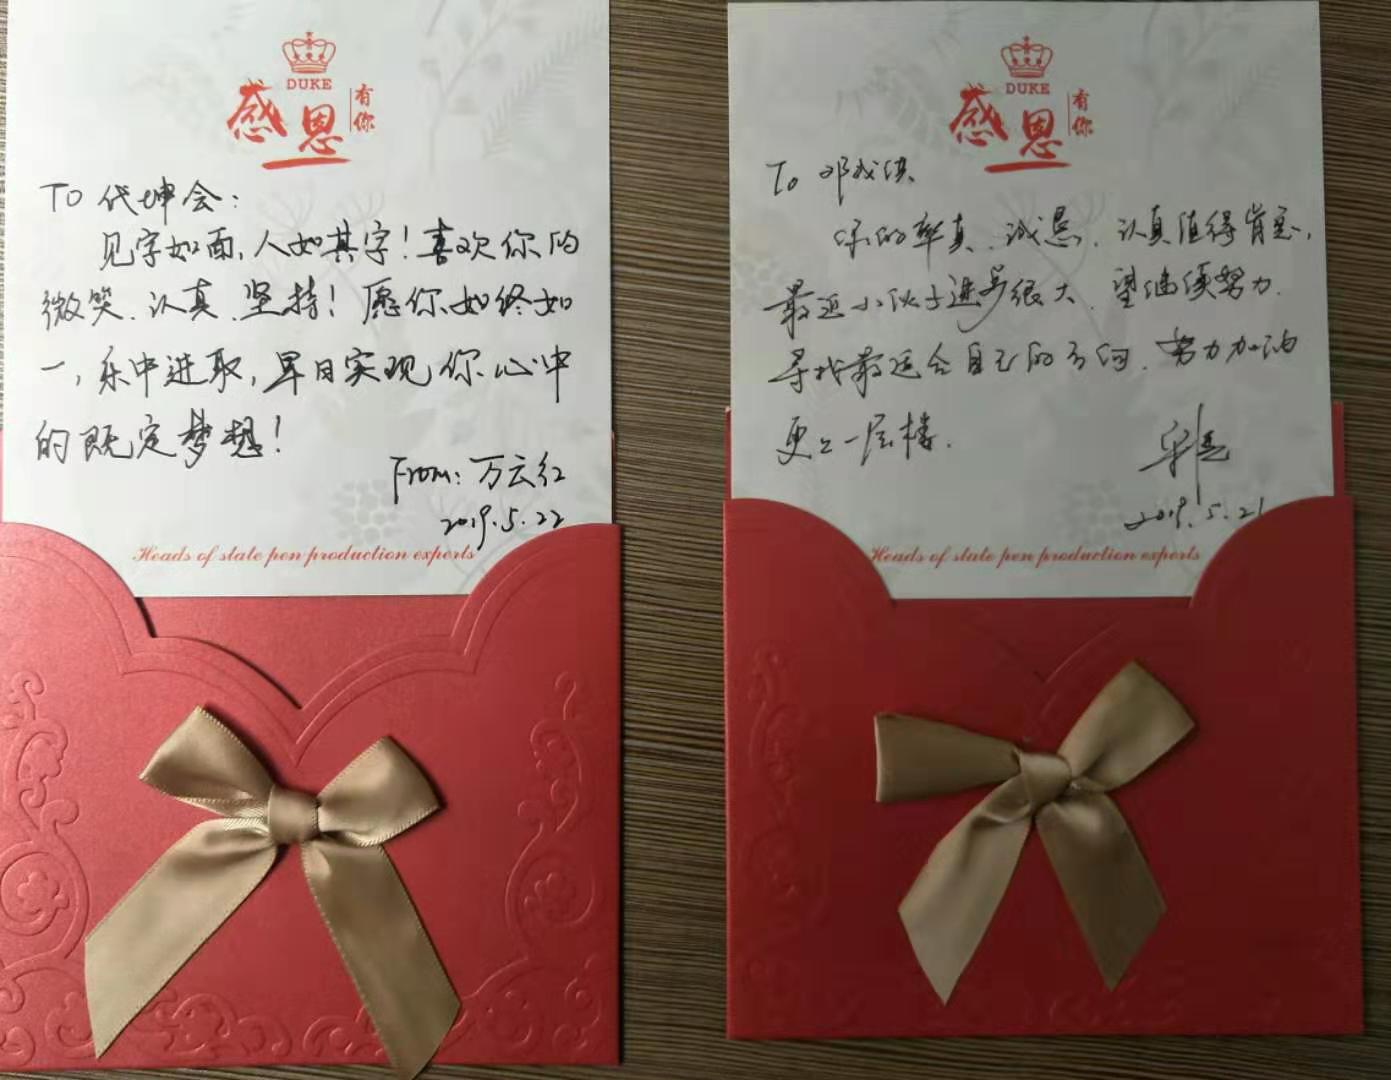 DUKE
感恩
有你
TO 代坤会：
见字如面，人如其字！喜欢你的
微笑、认真、坚持！愿你如终如
一，乐中进取，早日实现你心中
的既定梦想！
From：万云红
2019.5.22
Heads of state pen production experts
DUKE
感恩
有你
To 邓成
你的率真、诚恳、认真值得肯定，
最近小伙子进步很大、望继续努力、
寻找最适合自己的方向、努力加油
更上一层楼.
2019.5.21
Heads of state pen production experts